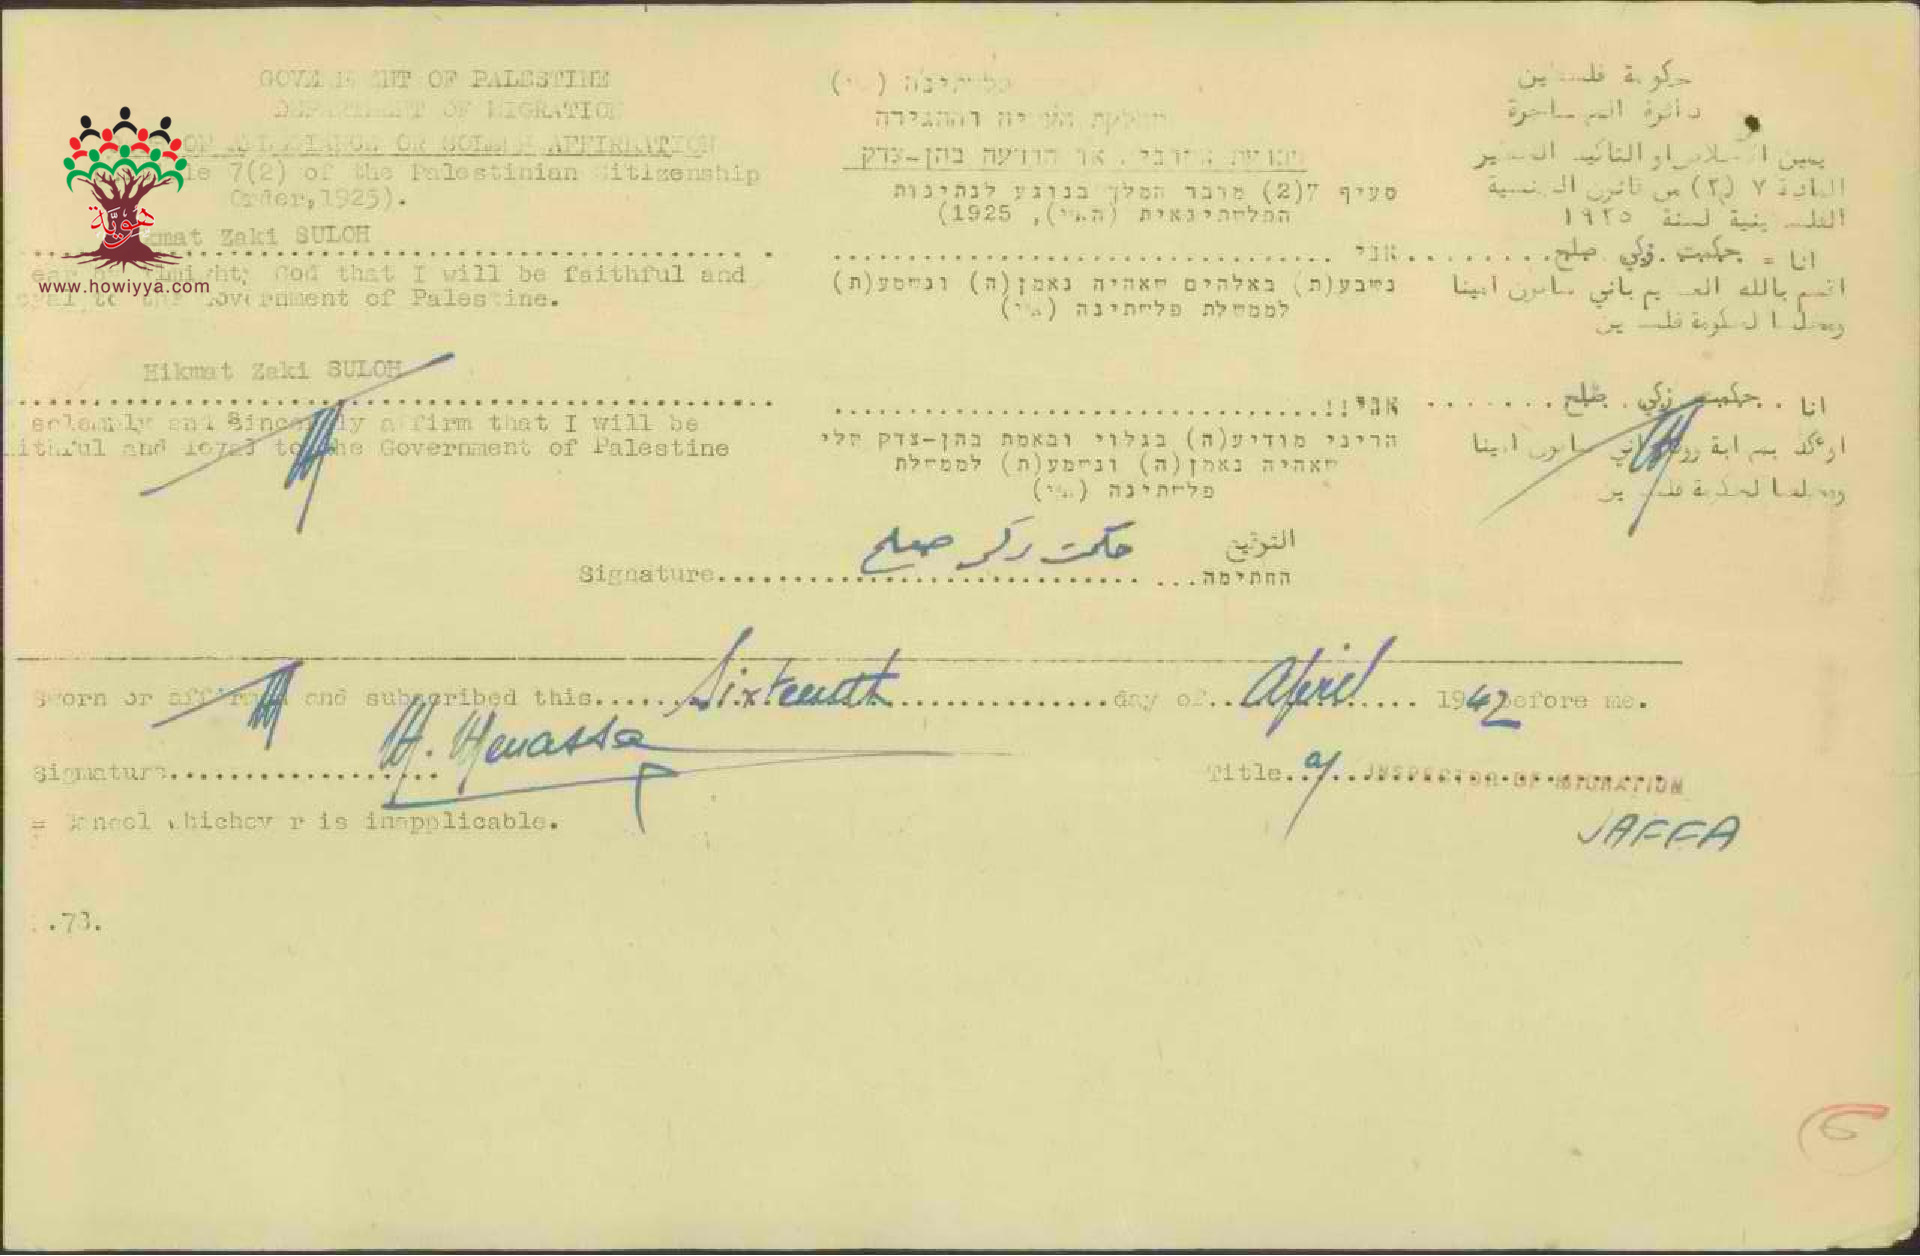 GOVERNMENT OF PALESTINE
DEPARTMENT OF MIGRATION
OR SOLEMN AFFIRMATION
7(2) of the Palestinian Citizenship
Order, 1925).
Zaki SULOH
Almighty God that I will be faithful and
to the Government of Palestine.
Hikmat Zaki SULOH
solemnly and Sincerely affirm that I will be
and loyal to the Government of Palestine
פלשתינה (א״י)
מחלקת העליה וההגירה
או הודעה בהן-צדק
סעיף 7(2) מדבר המלך בנוגע לנתינות
הפלשתינאית (הא״י), 1925)
אני
נשבע(ת) באלהים שאהיה נאמן(ה) ונשמע(ת)
לממשלת פלשתינה (א״י)
אני!!
הריני מודיע(ה) בגלוי ובאמת בהן-צדק שלי
שאהיה נאמן(ה) ונשמע(ת) לממשלת
פלשתינה (א״י)
حكومة فلسطين
دائرة المهاجرة
يمين الاخلاص او التاكيد
المادة ٧ (٢) من قانون الجنسية
الفلسطينية لسنة ١٩٢٥
انا = حكمت زكي صلح
اقسم بالله العظيم باني ساكون امينا
ومخلصا لحكومة فلسطين
انا حكمت زكي صلح
اؤكد بصراحة ساكون امينا
ومخلصا لحكومة فلسطين
التوقيع
حكمت زكي صلح
Signature
החתימה
Sworn or affirmed and subscribed this Sixteenth day of April 1942 before me.
Signature M. Menassa
Title a/ INSPECTOR OF MIGRATION
JAFFA
= Cancel whichever is inapplicable.
.73.
6
هوية
www.howiyya.com